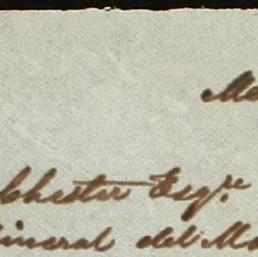 Ma
Chester Esqre
ineral del Mo